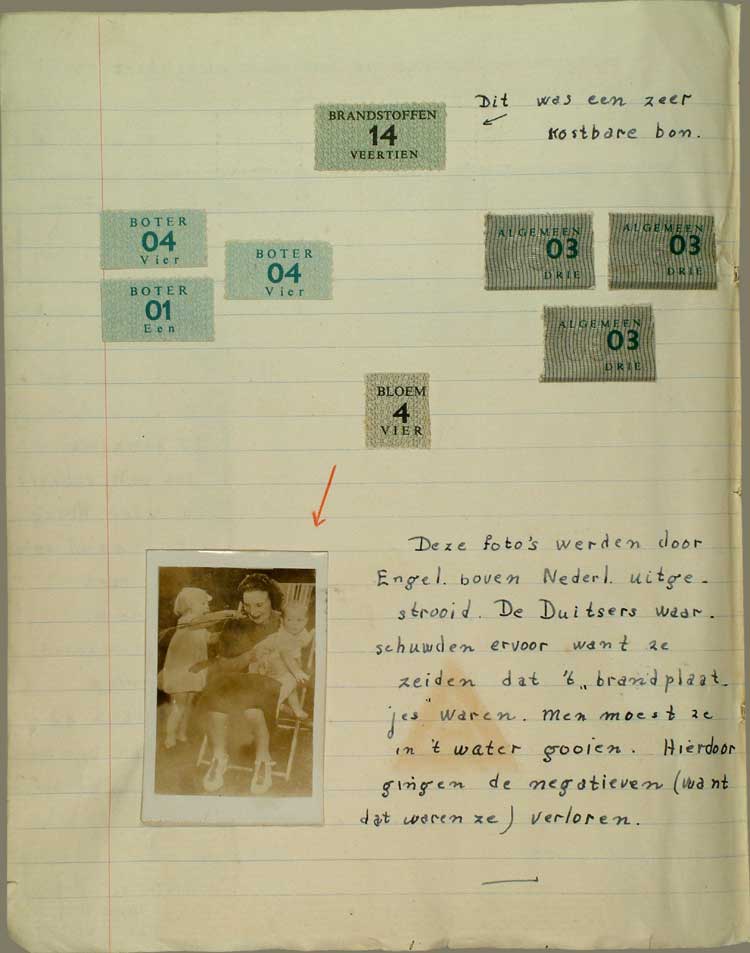 BRANDSTOFFEN
14
VEERTIEN
Dit was een zeer
kostbare bon.
BOTER
04
Vier
BOTER
04
Vier
BOTER
01
Een
ALGEMEEN
03
DRIE
ALGEMEEN
03
DRIE
ALGEMEEN
03
DRIE
BLOEM
4
VIER
Deze foto's werden door
Engel. boven Nederl. uitge-
strooid. De Duitsers waar-
schuwden ervoor want ze
zeiden dat 't „brandplaat-
jes" waren. Men moest ze
in 't water gooien. Hierdoor
gingen de negatieven (want
dat waren ze) verloren.